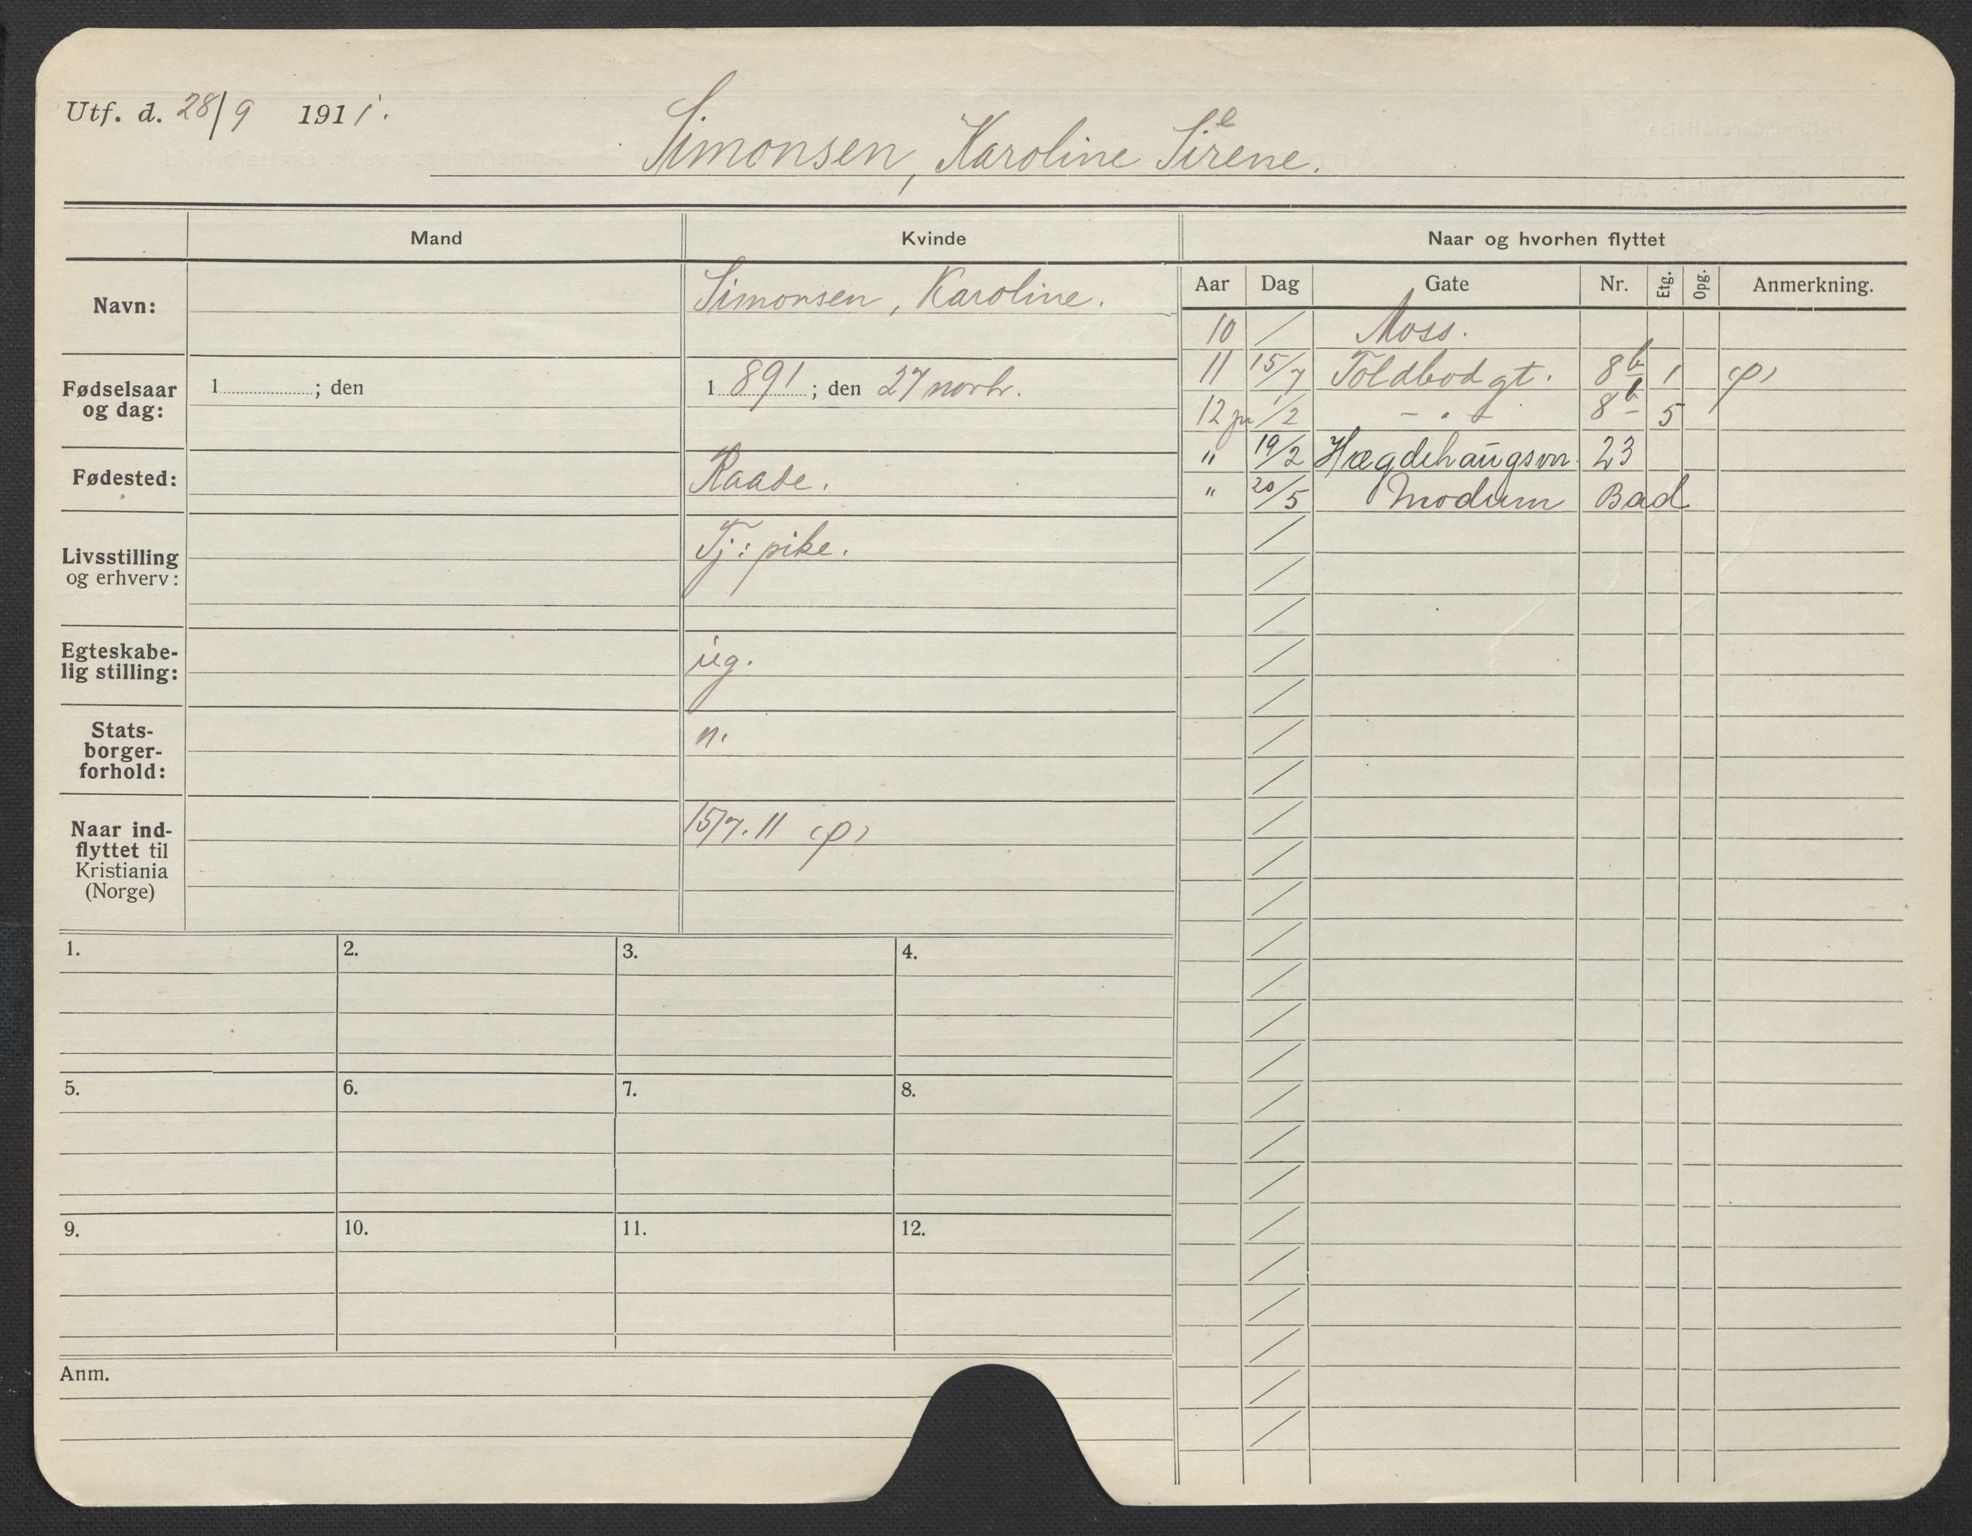 Utf. d. 28/9 1911.
e
Simonsen, Karoline Sirene.
Mand
Kvinde
Naar og hvorhen flyttet
Navn:
Simonsen, Karoline.
Fødselsaar og dag:
1 ; den
1 891 ; den 27 novbr.
Fødested:
Raade.
Livsstilling og erhverv:
Tj: pike.
Egteskabe-
lig stilling:
ug.
Stats-
borger-
forhold:
n.
Naar ind-
flyttet til
Kristiania
(Norge)
15/7. 11 (P)
Aar Dag Gate Nr. Etg. Opg. Anmerkning.
10 / Moss.
11 15/7 Toldbodgt. 8b 1 (P)
12 1/2 - " - 8b 5
" 19/2 Hægdehaugsvn. 23
" 20/5 Modum Bad
1. 2. 3. 4.
5. 6. 7. 8.
9. 10. 11. 12.
Anm.